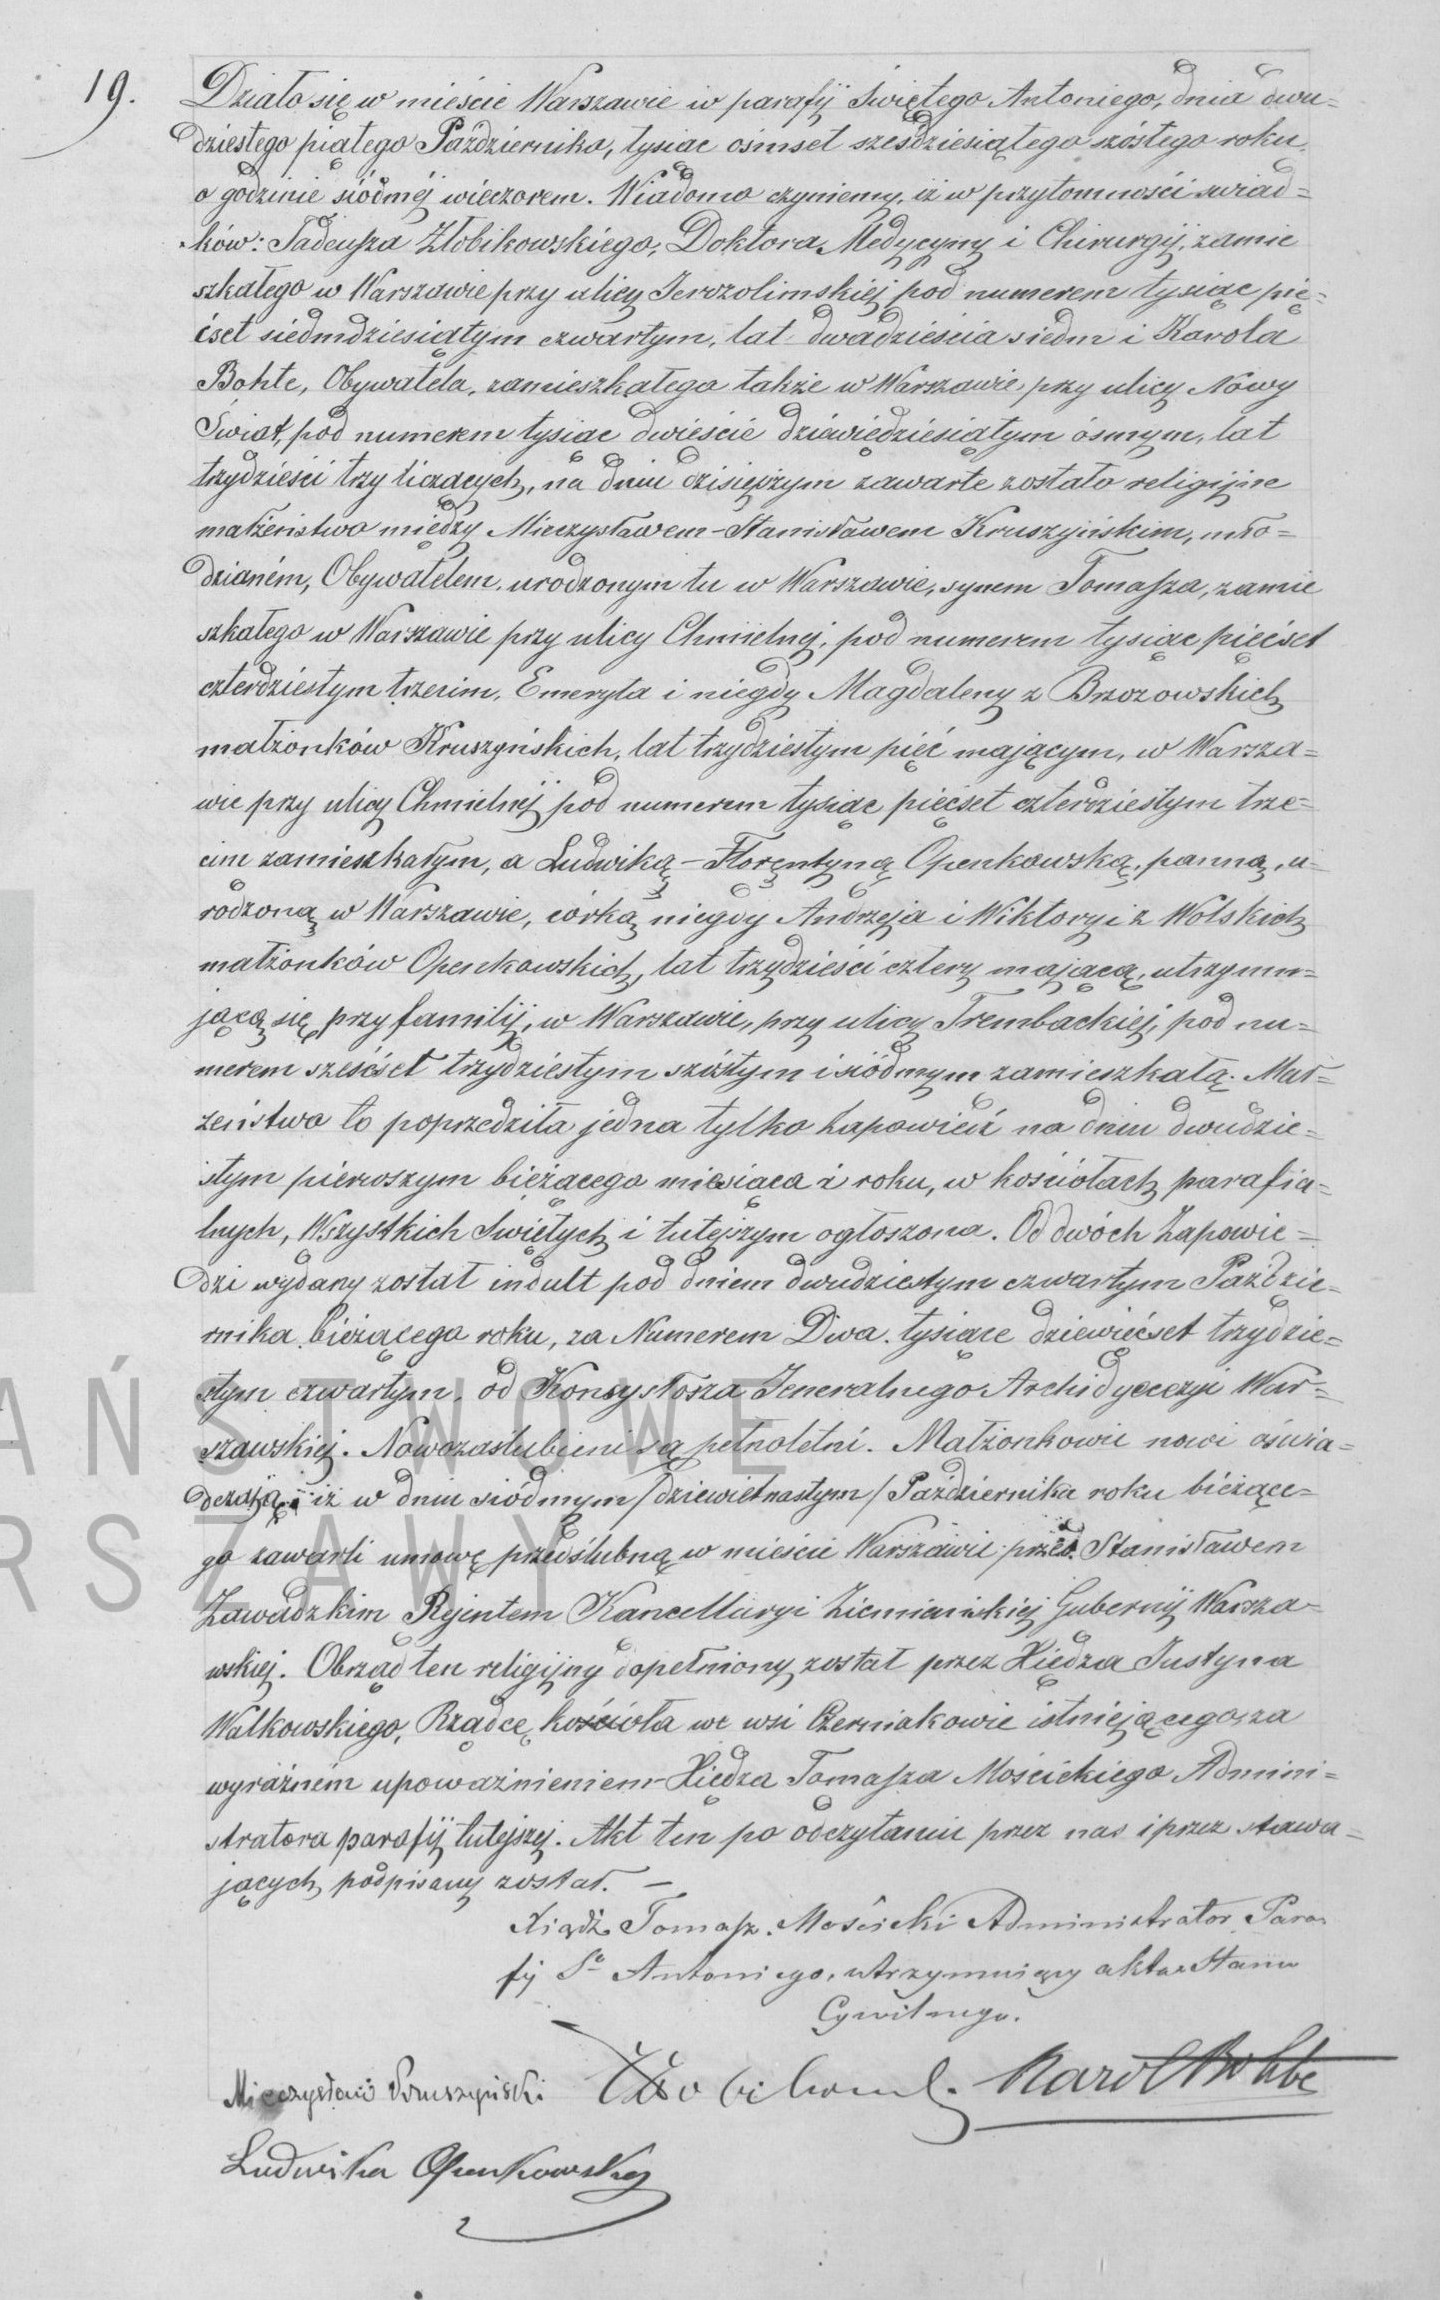 19.
Działo się w mieście Warszawie i w parafij Świętego Antoniego, dnia dwu=
dziestego piątego Października, tysiąc ośmset sześdziesiątego szóstego roku,
o godzinie siódméj wieczorem. Wiadomo czyniemy, iż w przytomności świad=
ków: Tadeusza Żłobikowskiego, Doktora Medycyny i Chirurgij, zamie
szkałego w Warszawie przy ulicy Jerozolimskiéj pod numerem tysiąc pię=
ćset siedmdziesiątym czwartym, lat dwadzieścia siedm i Karola
Bohte, Obywatela, zamieszkałego także w Warszawie, przy ulicy Nowy
Świat, pod numerem tysiąc dwieście dziewiędziesiątym ósmym, lat
trzydzieści trzy liczących, na dniu dzisiejszym zawarte zostało religijne
małżeństwo między Mieczysławem-Stanisławem Kruszyńskim, mło=
dzianém, Obywatelem, urodzonym tu w Warszawie, synem Tomasza, zamie
szkałego w Warszawie przy ulicy Chmielnéj, pod numerem tysiąc pięćset
czterdziestym trzecim, Emeryta i niegdy Magdaleny z Brzozowskich
małżonków Kruszyńskich, lat trzydziestym pięć mającym, w Warsza=
wie przy ulicy Chmielnéj pod numerem tysiąc pięćset czterdziestym trze=
cim zamieszkałym, a Ludwiką-Florentyną Openkowską, panną, u=
rodzoną w Warszawie, córką niegdy Andrzeja i Wiktoryi z Wolskich
małżonków Openkowskich, lat trzydzieści cztery mającą, utrzymu=
jącą się przy familij, w Warszawie, przy ulicy Trembackiej, pod nu=
merem sześćset trzydziestym szóstym i siódmym zamieszkałą. Mał=
żeństwo to poprzedziła jedna tylko Zapowiedź na dniu dwudzie=
stym pierwszym bieżącego miesiąca i roku, w kościołach parafia=
lnych, Wszystkich Świętych i tutejszym ogłoszona. Od dwóch Zapowie=
dzi wydany został indult pod dniem dwudziestym czwartym Paździe=
rnika bieżącego roku, za Numerem Dwa tysiące dziewięćset trzydzie=
stym czwartym, od Konsystorza Jeneralnego Archidyecezyi War=
szawskiéj. Nowozaślubieni są pełnoletni. Małżonkowie nowi oświa=
dczają iż w dniu siódmym /dziewietnastym/ Października roku bieżące=
go zawarli umowę przedślubną w mieście Warszawie przed Stanisławem
Zawadzkim Rejentem Kancellaryi Ziemiańskiéj Gubernij Warsza=
wskiéj. Obrząd ten religijny dopełniony został przez Xiędza Justyna
Walkowskiego, Rządcę kościoła we wsi Czerniakowie istniejącego, za
wyraźném upoważnieniem Xiędza Tomasza Mościckiego Admini=
stratora parafij tutejszéj. Akt ten po odczytaniu przez nas i przez stawa=
jących podpisany został. —
Xiądz Tomasz Mościcki Administrator Para
fij Sgo Antoniego, utrzymujący akta Stanu
Cywilnego.
Mieczysław Kruszyński Karol Bohte
Ludwika Openkowska
AŃSTWOWE
RSZAWY